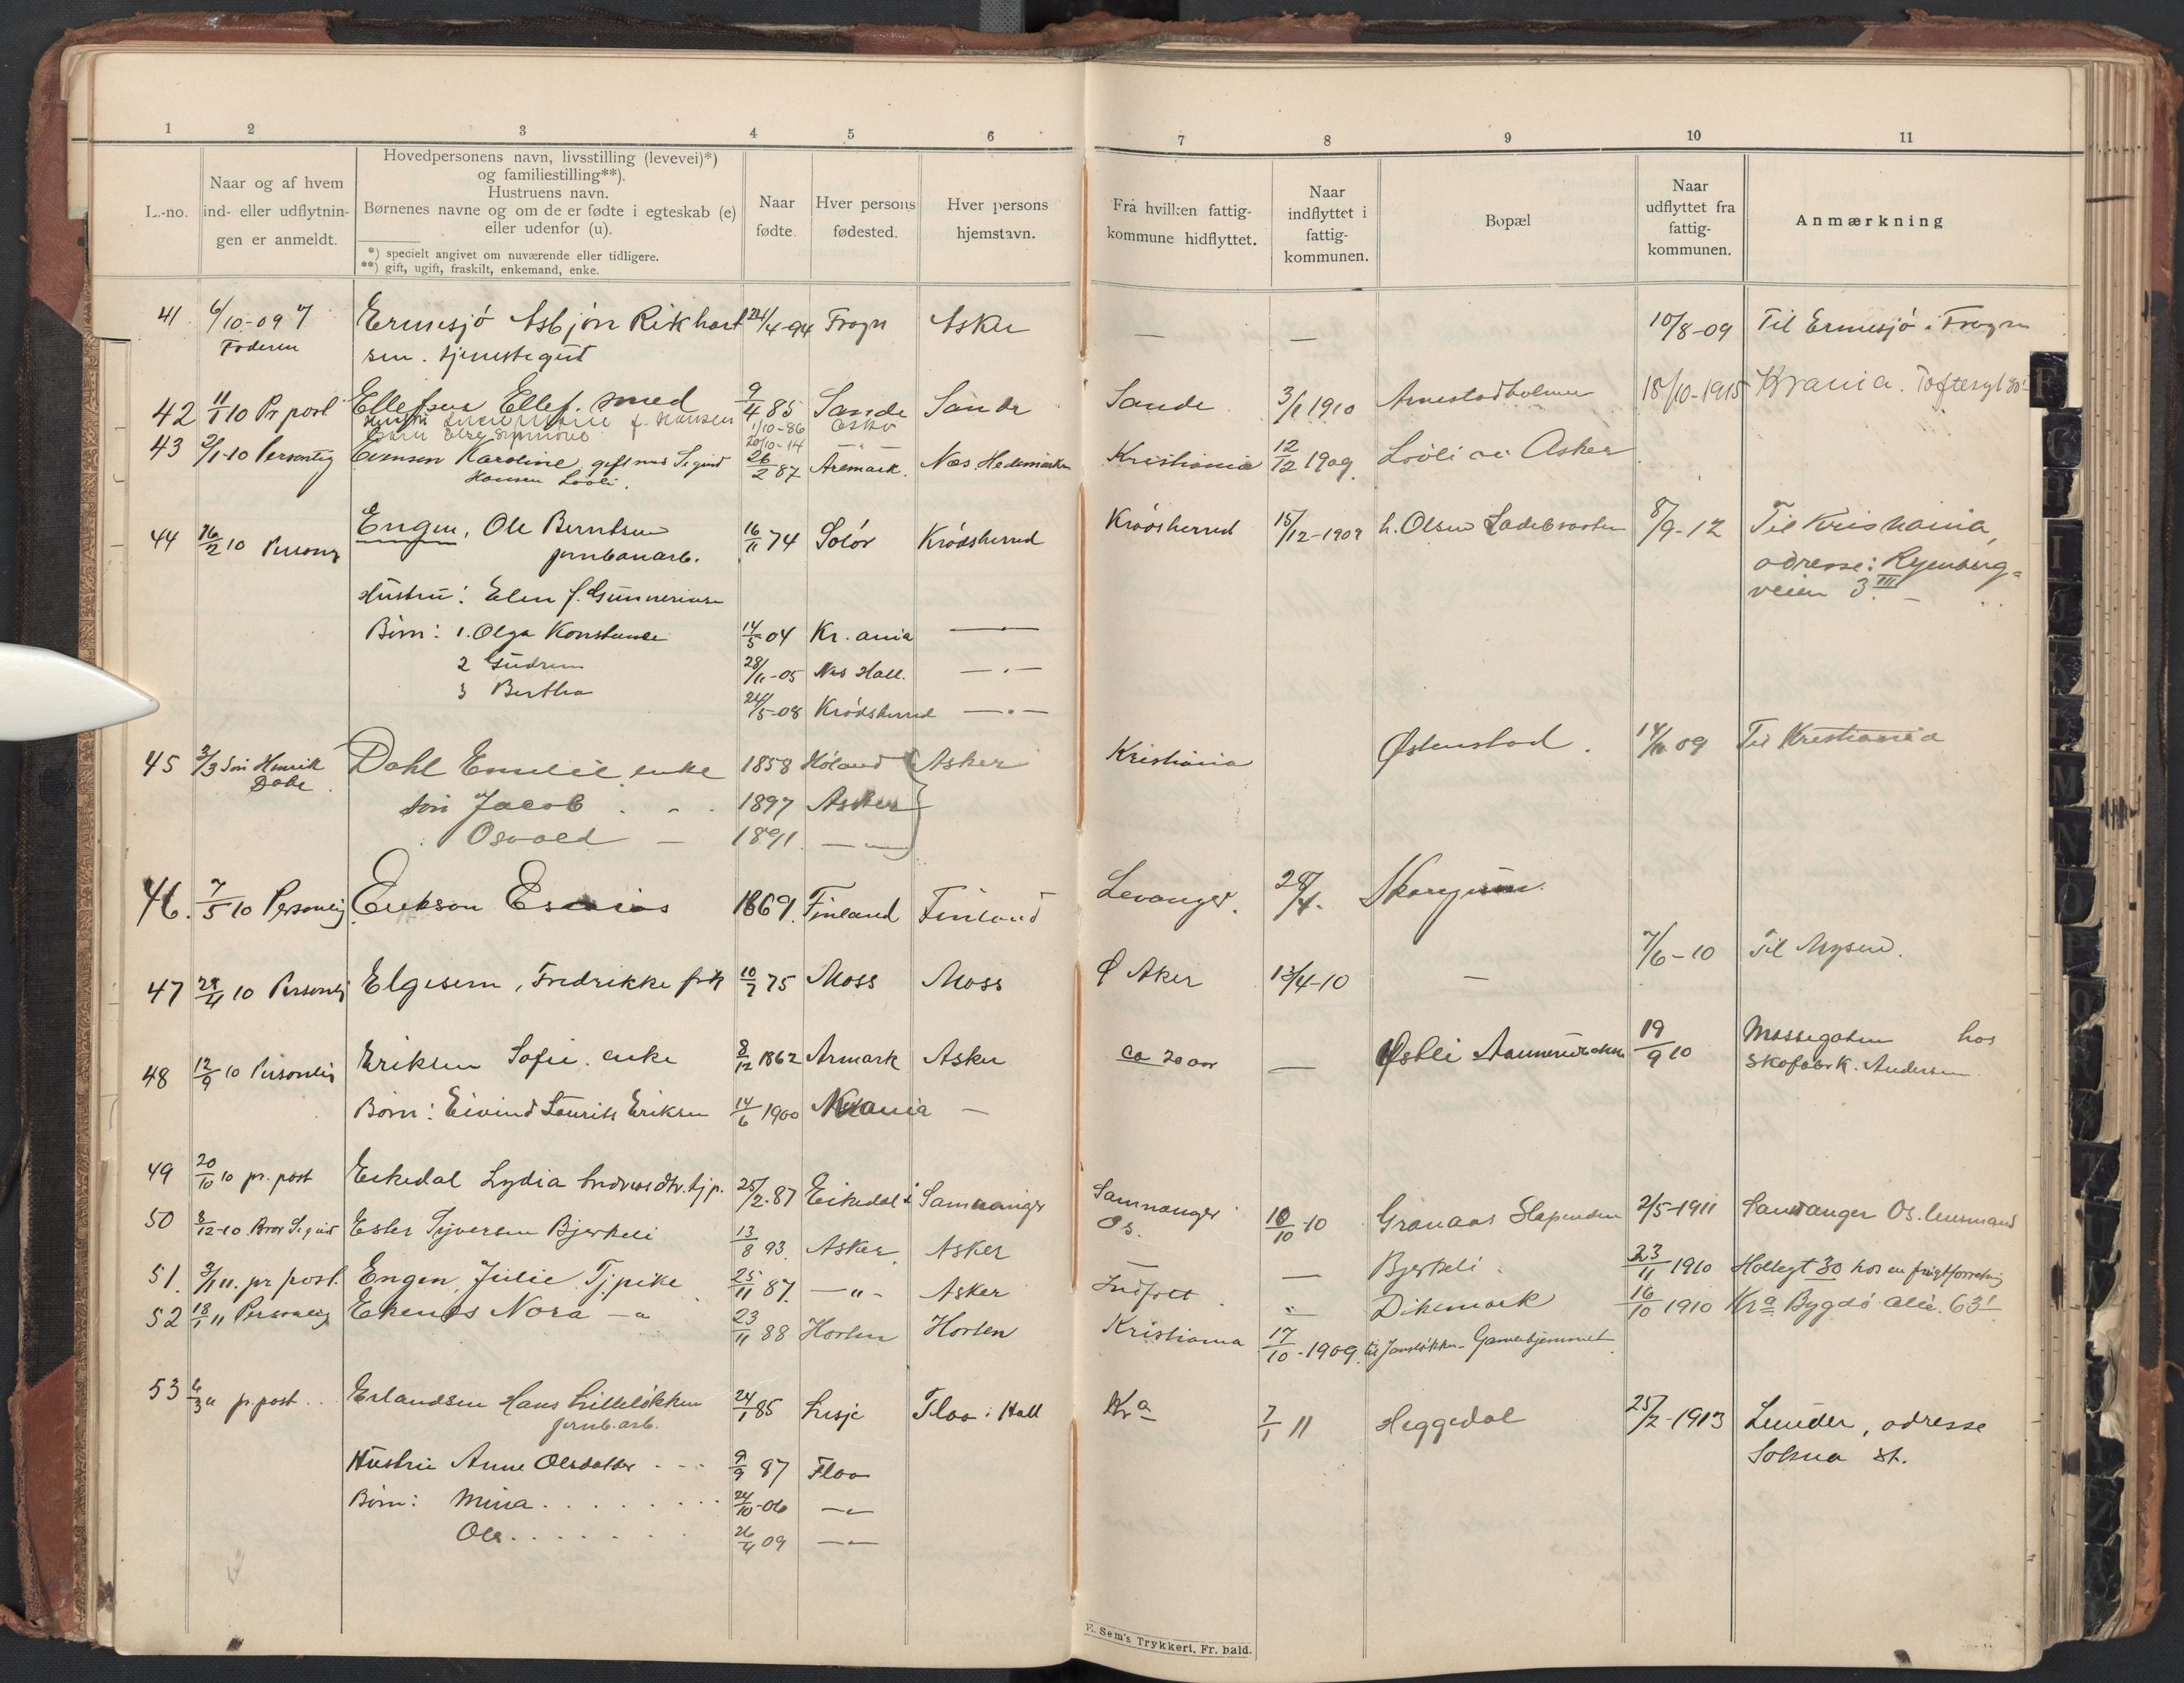 1 2 3 4 5 6 7 8 9 10 11
L.-no.
Naar og af hvem
ind- eller udflytnin-
gen er anmeldt.
Hovedpersonens navn, livsstilling (levevei)*)
og familiestilling**).
Hustruens navn.
Børnenes navne og om de er fødte i egteskab (e)
eller udenfor (u).
*) specielt angivet om nuværende eller tidligere.
**) gift, ugift, fraskilt, enkemand, enke.
Naar
fødte.
Hver persons
fødested.
Hver persons
hjemstavn.
Fra hvilken fattig-
kommune hidflyttet.
Naar
indflyttet i
fattig-
kommunen.
Bopæl
Naar
udflyttet fra
fattig-
kommunen.
Anmærkning
41 6/10-09 Ermesjö Asbjörn Rikhart 24/4-94 Frogn Asker — — 10/8-09 Til Ermesjö i Frogn
Faderen sen. tjenestegut
42 11/1 10 Pr post Ellefsen Ellef. smed 9/4 85 Sande Sande Sande 3/1 1910 Arnestadholmen 18/10-1915 Krania. Toftesgt
f. Hansen 1/10-86 Asker
20/10-14
43 2/1-10 Personlig Evensen Karoline gift med Sigurd 26/2 87 Aremark. Næs Hedemarken Kristiania 12/12 1909 Lööli i Asker
Hansen Lööli.
44 26/2 10 Personlig Engen, Ole Berntsen 16/11 74 Solör Krödsherred Krödsherred 15/12-1909 h. Olsen 8/9-12 Til Kristiania,
jernbanarb. adresse: Ryenberg=
veien 3 III
Hustru: Elen f. Gunneriusen
Börn: 1. Olga Konstanse 14/5 04 Kr.ania —
2 Gudrun 28/11-05 Næs Hall. —"—
3 Bertha 24/5-08 Krödsherred —"—
45 3/3 Sön Henrik Dahl Emilie enke 1858 Höland Asker Kristiania Østenstad. 14/10 09 Til Kristiania
Dahl
Sön Jacob 1897 Asker
Osvald — 1891 —"—
46. 7/5 10 Personlig Erikson Esaias 1869. Finland Finland Levanger. 28/4. Skaugum.
47 29/4 10 Personlig Elgesem, Fredrikke frk 10/7 75 Moss Moss Ø Aker 13/4-10 — 7/6-10 Til Mysen.
48 12/9 10 Personlig Eriksen Sofie. enke 8/12 1862 Armark Asker ca 20 aar — Østli 19/9 10 Mossegaten hos
skofabrk. Andersen
Börn: Eivind Laurits Eriksen 14/6 1900 Krania —
49 20/10 10 pr. post Eikedal Lydia tjp. 25/2-87 Eikedal i Samnanger Samnanger 10/10-10 Granaas Slependen 2/5-1911 Samnanger Os. lensmand
Os.
50 8/12-10 Bror Sigurd Ester Syversen Bjerkeli 13/8 93. Asker Asker Indfött — Bjerkeli. 23/11 1910 Holtegt 30 hos en
51. 3/1 11. pr post. Engen, Julie Tjpike 25/11 87. —"— Asker " Dikemark 16/10 1910 Kra Bygdö allé. 63 I
52 18/1 11 Personlig Ekenes Nora —" 23/11 88 Horten Horten Kristiania 17/10-1909. Gamlehjemmet
53 6/3 11 pr. post.. Erlandsen Hans Lillelökken 24/1 85 Lesje Flaa i Hall Kra 7/1 11 Heggedal 25/2-1913 Lunder, adresse
jernb.arb. Sokna st.
Hustru Anne Olsdatter 9/9 87 Flaa
Börn: Mina . . . . . . 24/10-06 —"—
Ole . . . . . . 26/4 09 —"—
E. Sem's Trykkeri, Fr. hald.